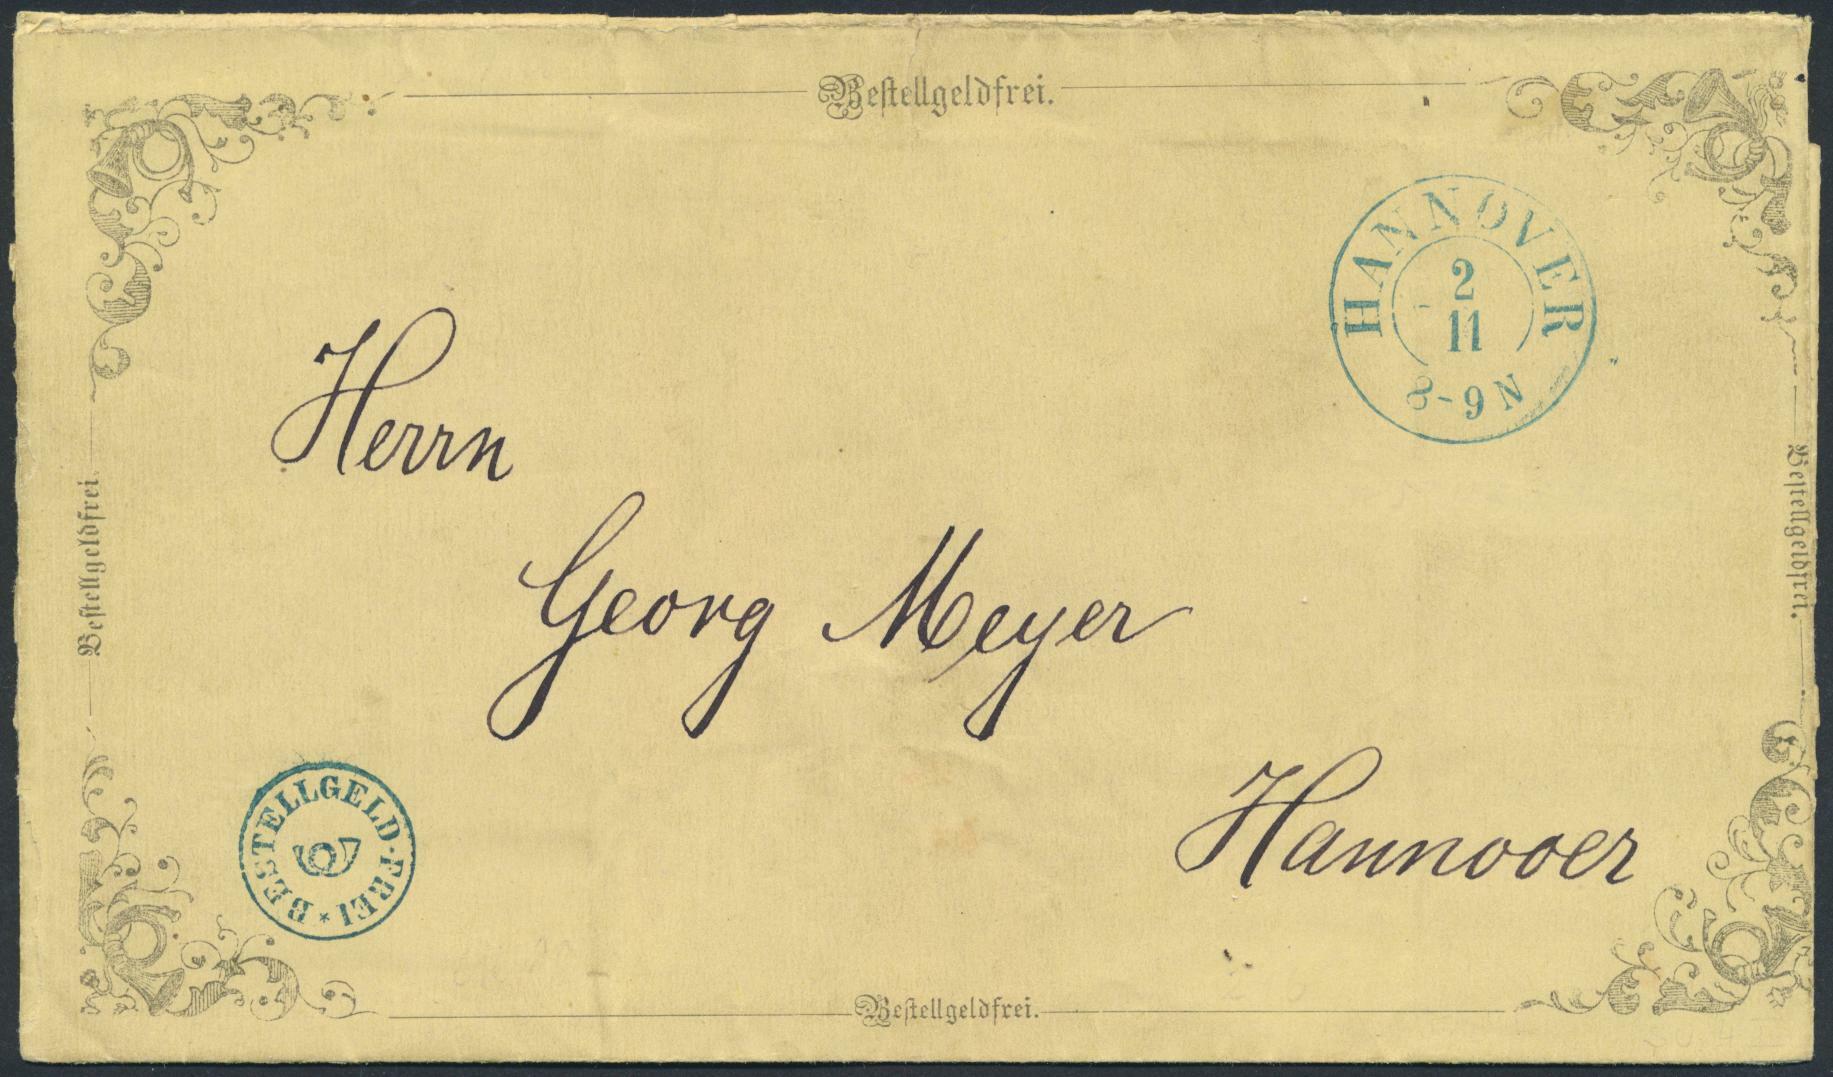 Bestellgeldfrei.
HANNOVER
2
11
8-9 N
Herrn
Georg Meyer
Hannover
Bestellgeldfrei.
Bestellgeldfrei.
BESTELLGELD·FREI *
Bestellgeldfrei.